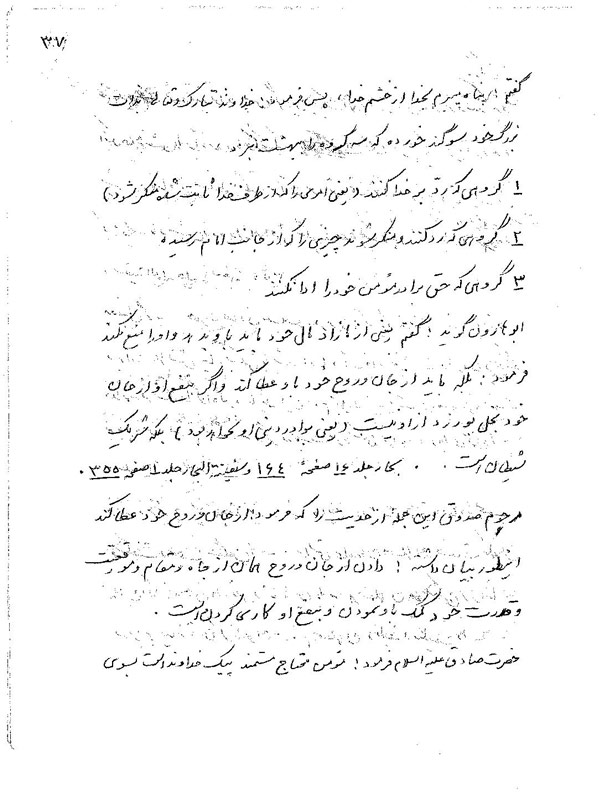 ۳۷
گفتم: پناه میبرم بخدا از خشم خدا، پس فرمود: خداوند تبارک و تعالی بذات
بزرگ خود سوگند خورده که سه گروه را ببهشت نبرد
۱ گروهی که رد بر خدا کنند (یعنی امری را که از طرف خدا ثابت شده منکر شود)
۲ گروهی که رد کنند و منکر شوند چیزی را که از جانب امام رسیده
۳ گروهی که حق برادر مؤمن خود را ادا نکنند
ابوهارون گوید: گفتم یعنی از مازاد مال خود باید باو بدهد و او را منع نکند
فرمود: بلکه باید از جان و روح خود باو عطا کند و اگر بنفع او از جان
خود بخل بورزد از او نیست (یعنی برادر دینی او نخواهد بود) بلکه شریک
شیطان است. بحار جلد ۱۶ صفحهٔ ۱۶۴ و سفینة البحار جلد ۱ صفحه ۳۵۵.
مرحوم صدوق این جمله از حدیث را که فرمود: از جان و روح خود عطا کند
اینطور بیان داشته: دادن از جان و روح همان از جاه و مقام و موقعیت
و قدرت خود کمک باو نمودن و بنفع او کاری کردن است.
حضرت صادق علیه السلام فرمود: مؤمن محتاج مستمند پیک خداوند است بسوی